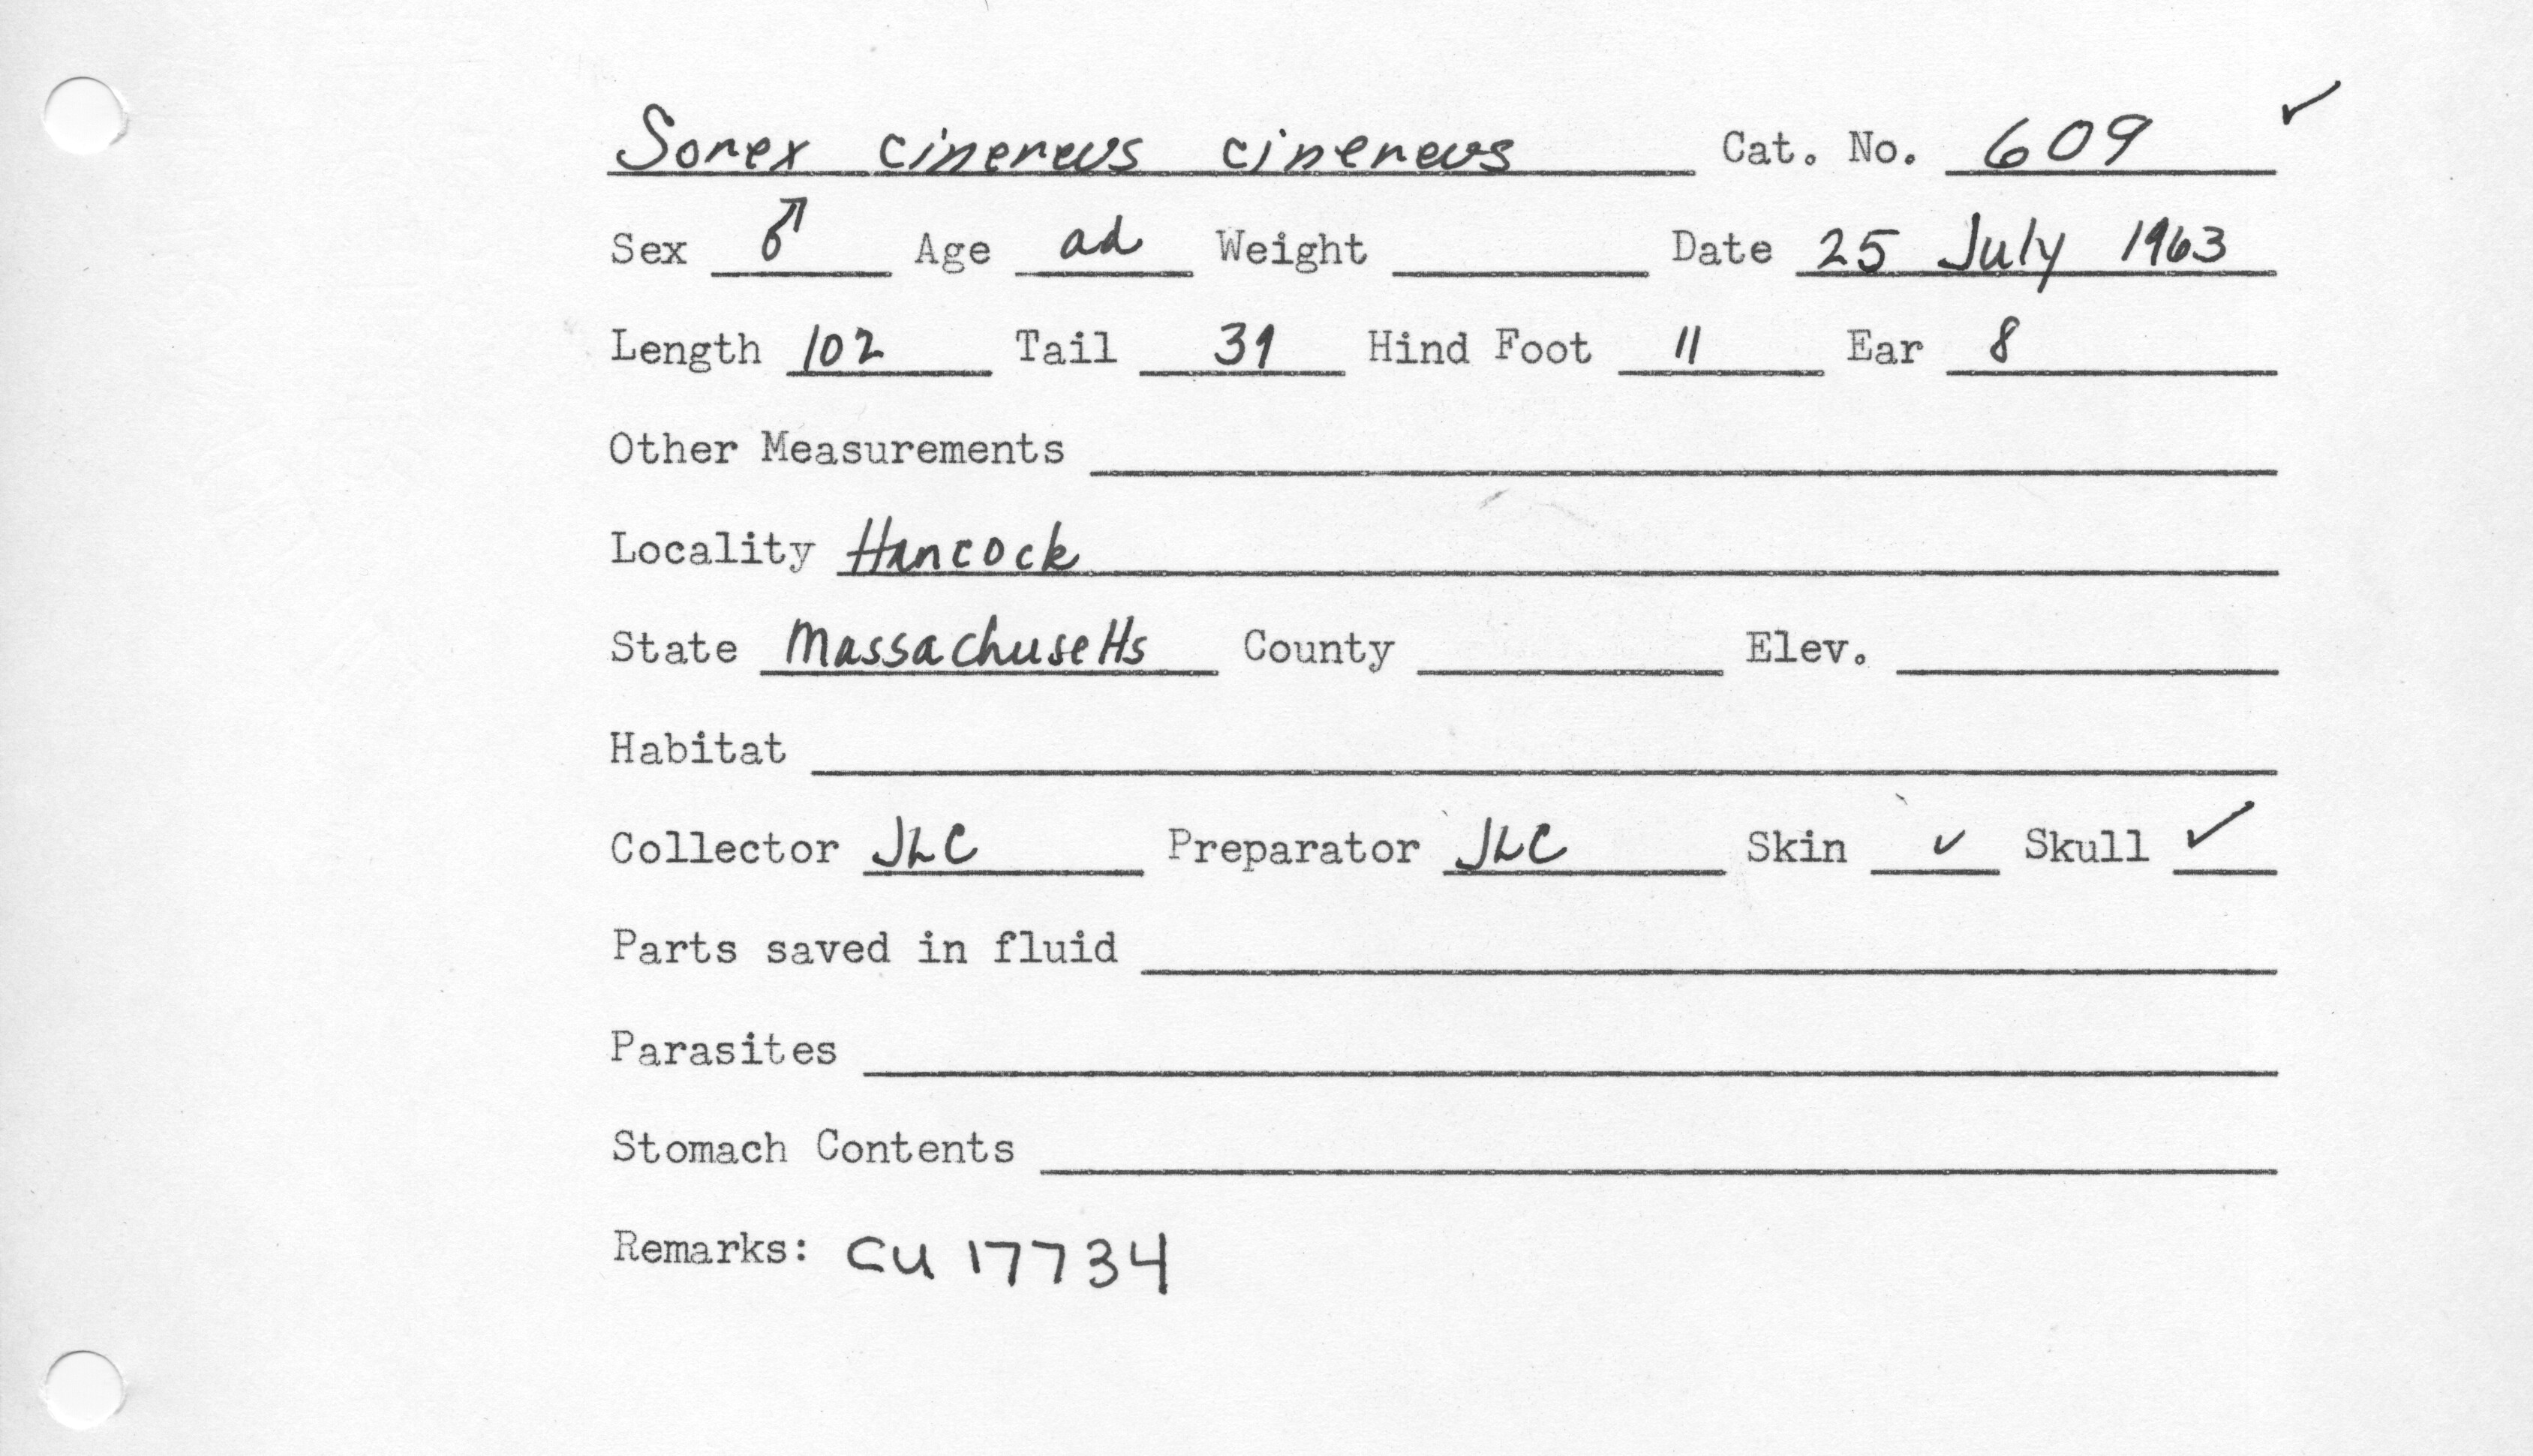 Sorex cinereus cinereus Cat. No. 609 ✓
Sex ♂ Age ad Weight Date 25 July 1963
Length 102 Tail 39 Hind Foot 11 Ear 8
Other Measurements
Locality Hancock
State Massachusetts County Elev.
Habitat
Collector JLC Preparator JLC Skin ✓ Skull ✓
Parts saved in fluid
Parasites
Stomach Contents
Remarks: CU 17734